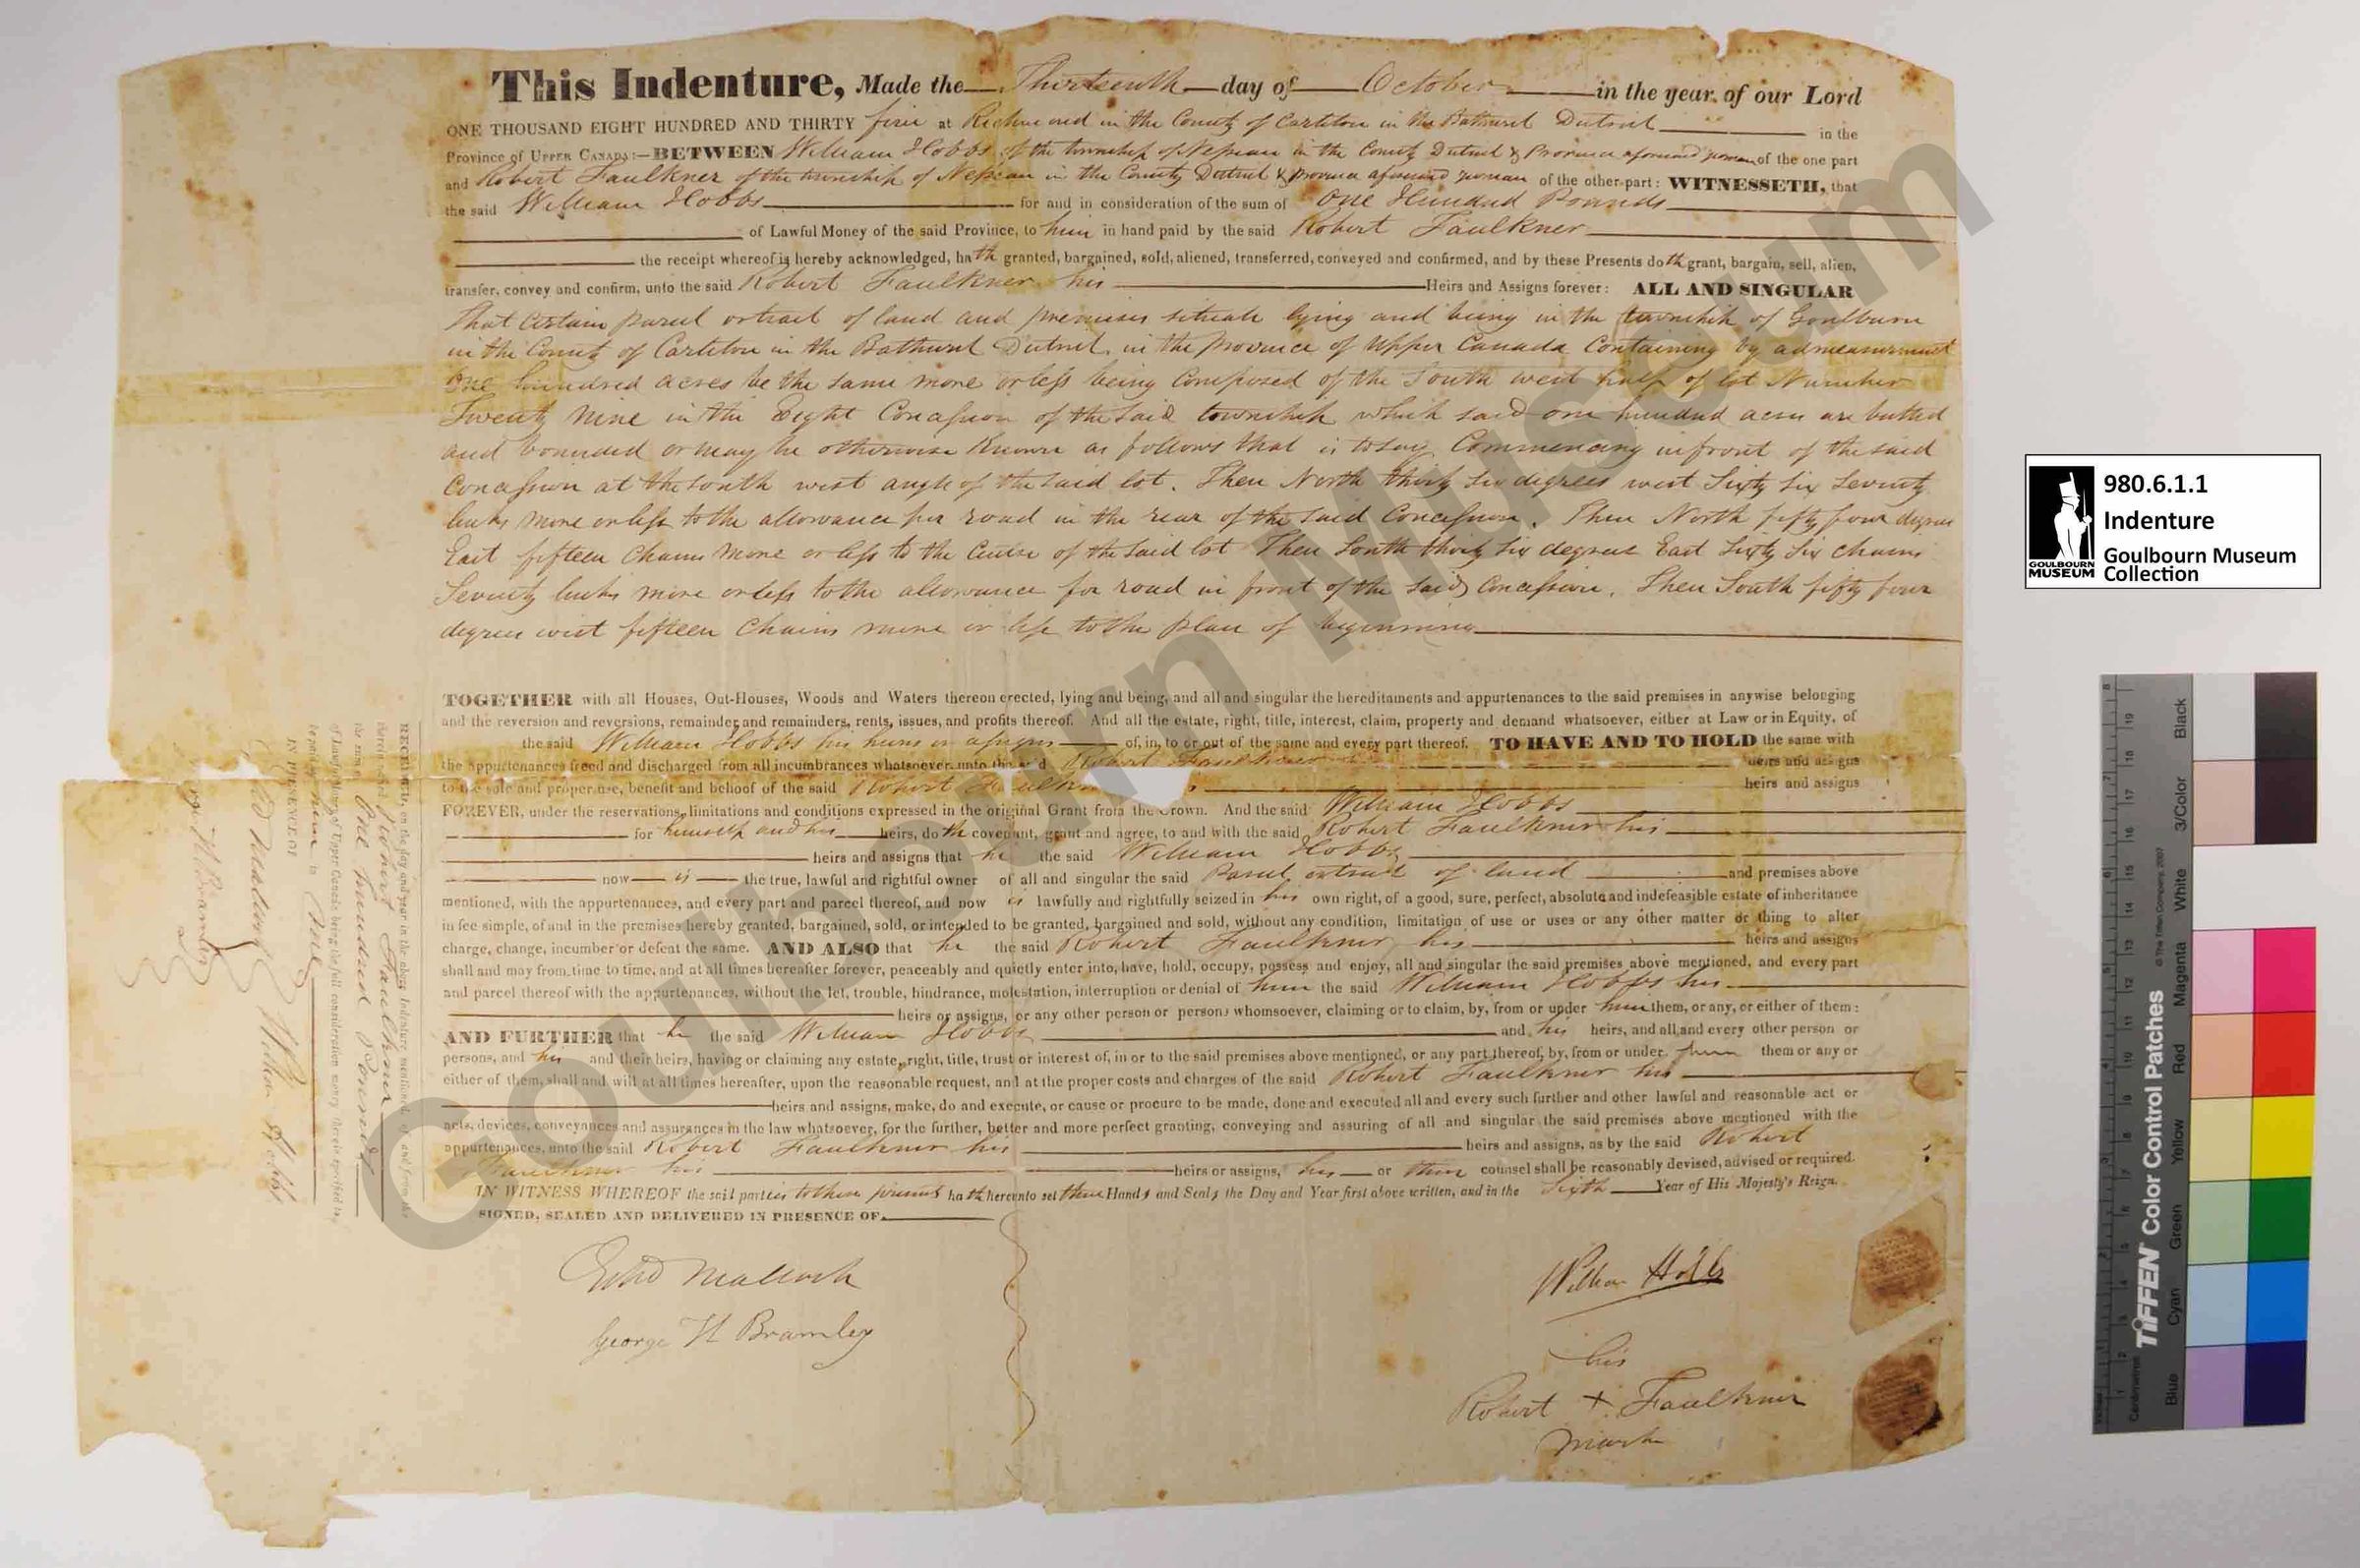 This Indenture, Made the Thirteenth day of October in the year of our Lord
ONE THOUSAND EIGHT HUNDRED AND THIRTY five at Richmond in the County of Carleton in the Bathurst District in the
Province of UPPER CANADA:—BETWEEN William Hobbs of the township of Nepean in the County District & Province aforesaid yeoman of the one part
and Robert Faulkner of the township of Nepean in the County District & province aforesaid yeoman of the other part: WITNESSETH, that
the said William Hobbs for and in consideration of the sum of One Hundred Pounds
of Lawful Money of the said Province, to him in hand paid by the said Robert Faulkner
the receipt whereof is hereby acknowledged, hath granted, bargained, sold, aliened, transferred, conveyed and confirmed, and by these Presents doth grant, bargain, sell, alien,
transfer, convey and confirm, unto the said Robert Faulkner his Heirs and Assigns forever: ALL AND SINGULAR
That Certain parcel or tract of land and premises situate lying and being in the township of Goulburn
in the County of Carleton in the Bathurst District in the Province of Upper Canada Containing by admeasurement
One hundred acres be the same more or less being Composed of the South west half of lot Number
Twenty Nine in the Eight Concession of the Said township which said one hundred acres are butted
and bounded or may be otherwise Known as follows that is to say Commencing in front of the said
Concession at the South west angle of the said lot. Then North thirty six degrees west Sixty Six Seventy
links more or less to the allowance for road in the rear of the said Concession. Then North fifty four degrees
East fifteen Chains more or less to the Centre of the said lot Then South thirty Six degrees East Sixty Six chains
Seventy links more or less to the allowance for road in front of the Said Concession. Then South fifty four
degrees west fifteen Chains more or less to the place of beginning
TOGETHER with all Houses, Out-Houses, Woods and Waters thereon erected, lying and being, and all and singular the hereditaments and appurtenances to the said premises in anywise belonging
and the reversion and reversions, remainder and remainders, rents, issues, and profits thereof. And all the estate, right, title, interest, claim, property and demand whatsoever, either at Law or in Equity, of
the said William Hobbs his heirs or assigns of, in, to or out of the same and every part thereof. TO HAVE AND TO HOLD the same with
the appurtenances freed and discharged from all incumbrances whatsoever unto the Robert Faulkner heirs and assigns
to the sole and proper use, benefit and behoof of the said Robert heirs and assigns
FOREVER, under the reservations, limitations and conditions expressed in the original Grant from the Crown. And the said William Hobbs
for himself and his heirs, doth covenant, grant and agree, to and with the said Robert Faulkner his
heirs and assigns that he the said William Hobbs
now is the true, lawful and rightful owner of all and singular the said Parcel or tract of land and premises above
mentioned, with the appurtenances, and every part and parcel thereof, and now is lawfully and rightfully seized in his own right, of a good, sure, perfect, absolute and indefeasible estate of inheritance
in fee simple, of and in the premises hereby granted, bargained, sold, or intended to be granted, bargained and sold, without any condition, limitation of use or uses or any other matter or thing to alter
charge, change, incumber or defeat the same. AND ALSO that he the said Robert Faulkner his heirs and assigns
shall and may from time to time, and at all times hereafter forever, peaceably and quietly enter into, have, hold, occupy, possess and enjoy, all and singular the said premises above mentioned, and every part
and parcel thereof with the appurtenances, without the let, trouble, hindrance, molestation, interruption or denial of him the said William Hobbs his
heirs or assigns, or any other person or persons whomsoever, claiming or to claim, by, from or under him them, or any, or either of them:
AND FURTHER that he the said William Hobbs and his heirs, and all and every other person or
persons, and his and their heirs, having or claiming any estate, right, title, trust or interest of, in or to the said premises above mentioned, or any part thereof, by, from or under them or any or
either of them, shall and will at all times hereafter, upon the reasonable request, and at the proper costs and charges of the said Robert Faulkner his
heirs and assigns, make, do and execute, or cause or procure to be made, done and executed all and every such further and other lawful and reasonable act or
acts, devices, conveyances and assurances in the law whatsoever, for the further, better and more perfect granting, conveying and assuring of all and singular the said premises above mentioned with the
appurtenances, unto the said Robert Faulkner his heirs and assigns, as by the said Robert
Faulkner his heirs or assigns, his or their counsel shall be reasonably devised, advised or required.
IN WITNESS WHEREOF the said parties to these presents hath hereunto set their Hands and Seals the Day and Year first above written, and in the Sixth Year of His Majesty's Reign.
SIGNED, SEALED AND DELIVERED IN PRESENCE OF
Edwd Malloch
George H Bramley
William Hobbs
his
Robert + Faulkner
mark
RECEIVED, on the day and year in the above Indenture mentioned, of and from the
Robert Faulkner
the sum of One hundred Pounds
of Lawful Money of Upper Canada being the full consideration money therein specified to
be paid
IN PRESENCE OF
Malloch William Hobbs
H Bramley
980.6.1.1
Indenture
Goulbourn Museum
Collection
GOULBOURN
MUSEUM
Goulbourn Museum
TIFFEN Color Control Patches
© The Tiffen Company, 2007
Centimetres
Blue Cyan Green Yellow Red Magenta White 3/Color Black